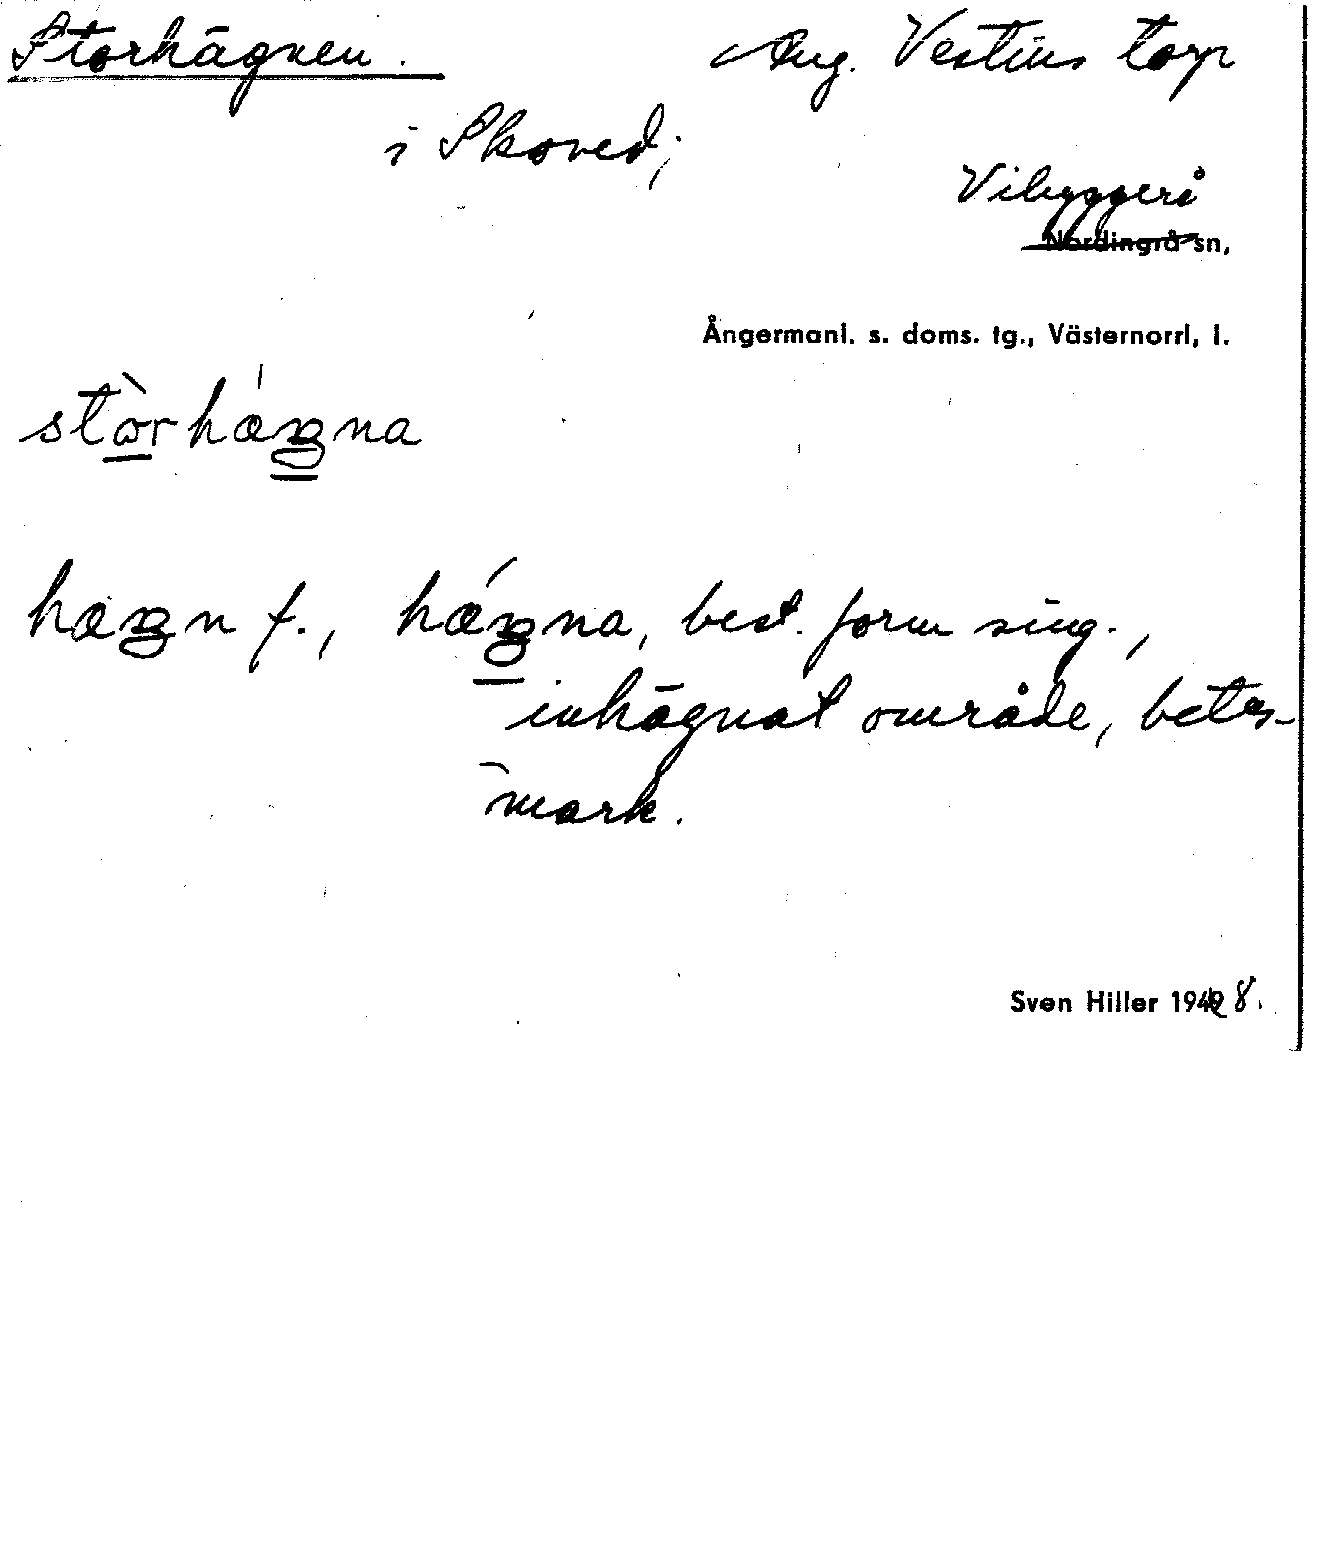 Storhägnen. Aug. Vestins torp
i Skoved;
Vibyggerå
Nordingrå sn,
Ångermanl. s. doms. tg., Västernorrl, l.
hægn f., hǽgna, best. form sing.,
inhägnat område, betes-
mark.
Sven Hiller 1948.